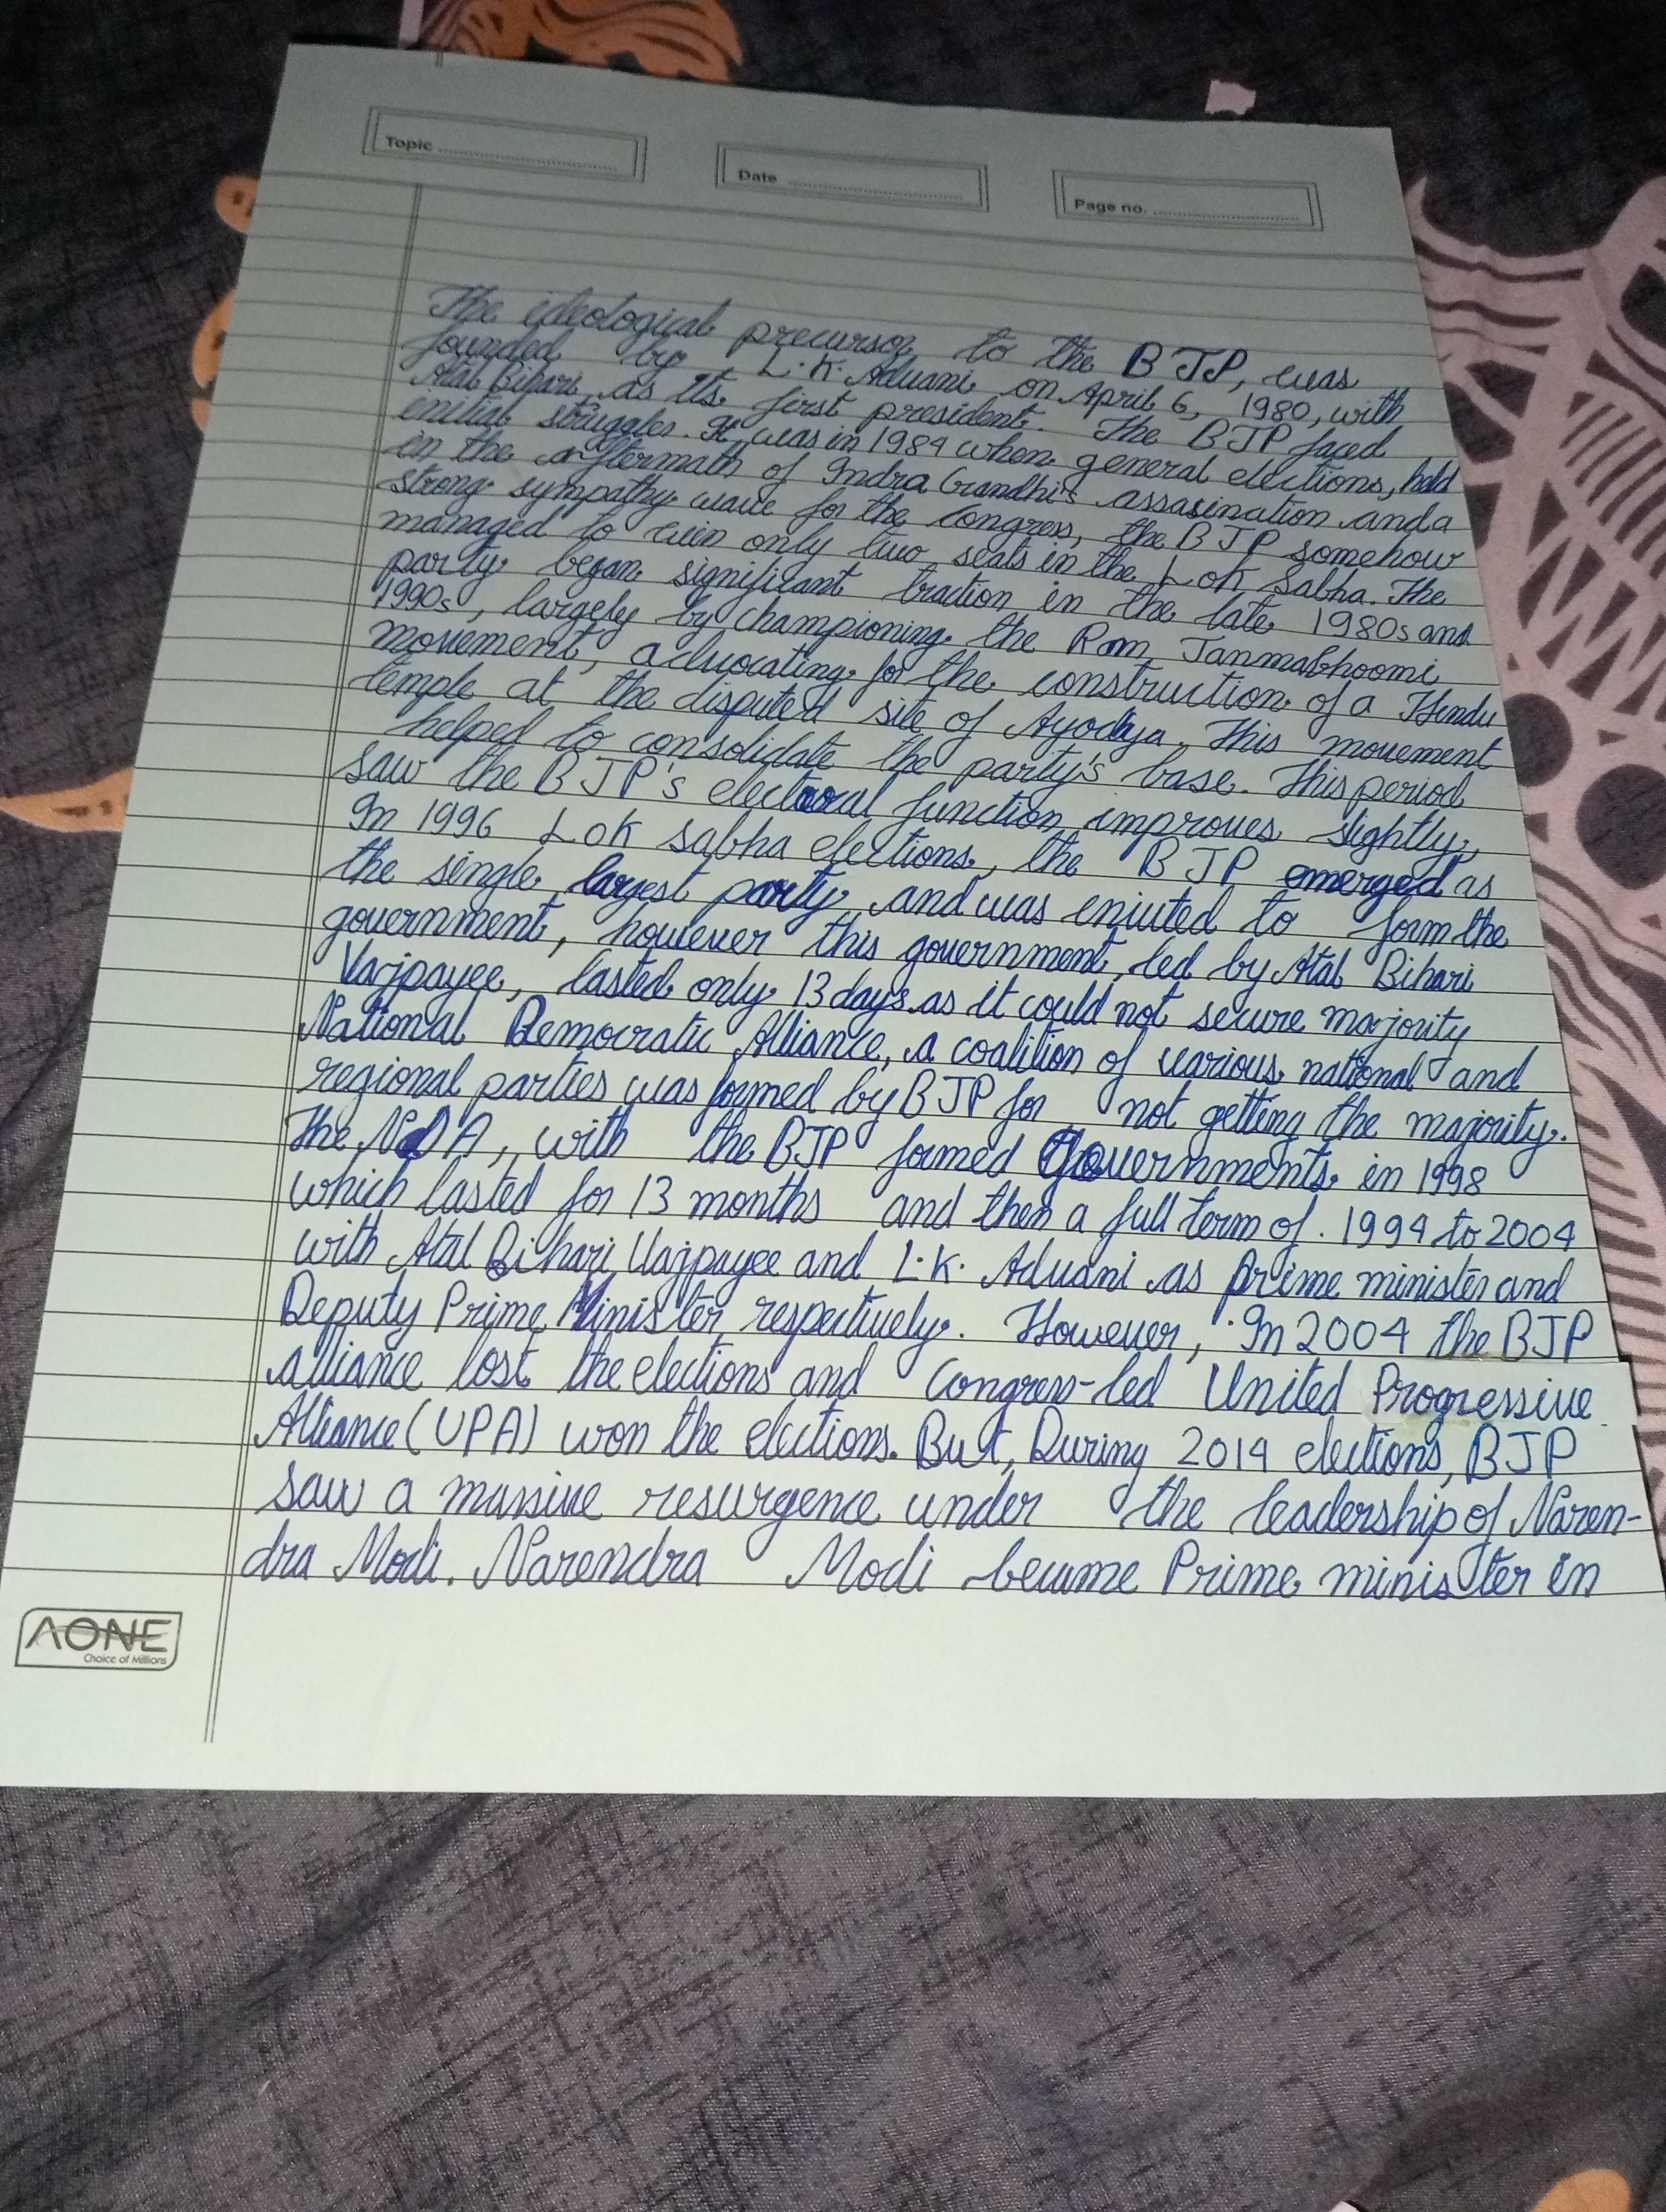 Topic
Date
Page no.
The ideological precursor to the BJP, was
founded by L.K. Advani on April 6, 1980, with
Atal Bihari, as its first president. The BJP faced
initial struggles. It was in 1984 when general elections, held
in the aftermath of Indra Gandhi's assasination and a
strong sympathy wave for the Congress, the BJP somehow
managed to win only two seats in the Lok Sabha. The
party began significant traction in the late 1980s and
1990s, largely by championing the Ram Janmabhoomi
movement, advocating for the construction of a Hindu
temple at the disputed site of Ayodhya. This movement
helped to consolidate the party's base. This period
saw the BJP's electoral function improves slightly,
In 1996 Lok Sabha elections, the BJP emerged as
the single largest party and was invited to form the
government, however this government, led by Atal Bihari
Vajpayee, lasted only 13 days as it could not secure majority
National Democratic Alliance, a coalition of various national and
regional parties was formed by BJP for not getting the majority.
The NDA, with the BJP formed Governments in 1998
which lasted for 13 months and then a full term of . 1994 to 2004
with Atal Bihari Vajpayee and L.K. Advani as prime minister and
Deputy Prime Minister respectively. However, In 2004 the BJP
alliance lost the elections and Congress-led United Progressive
Alliance (UPA) won the elections. But, During 2014 elections, BJP
saw a massive resurgence under the leadership of Naren-
dra Modi. Narendra Modi became Prime minister in
AONE
Choice of Millions